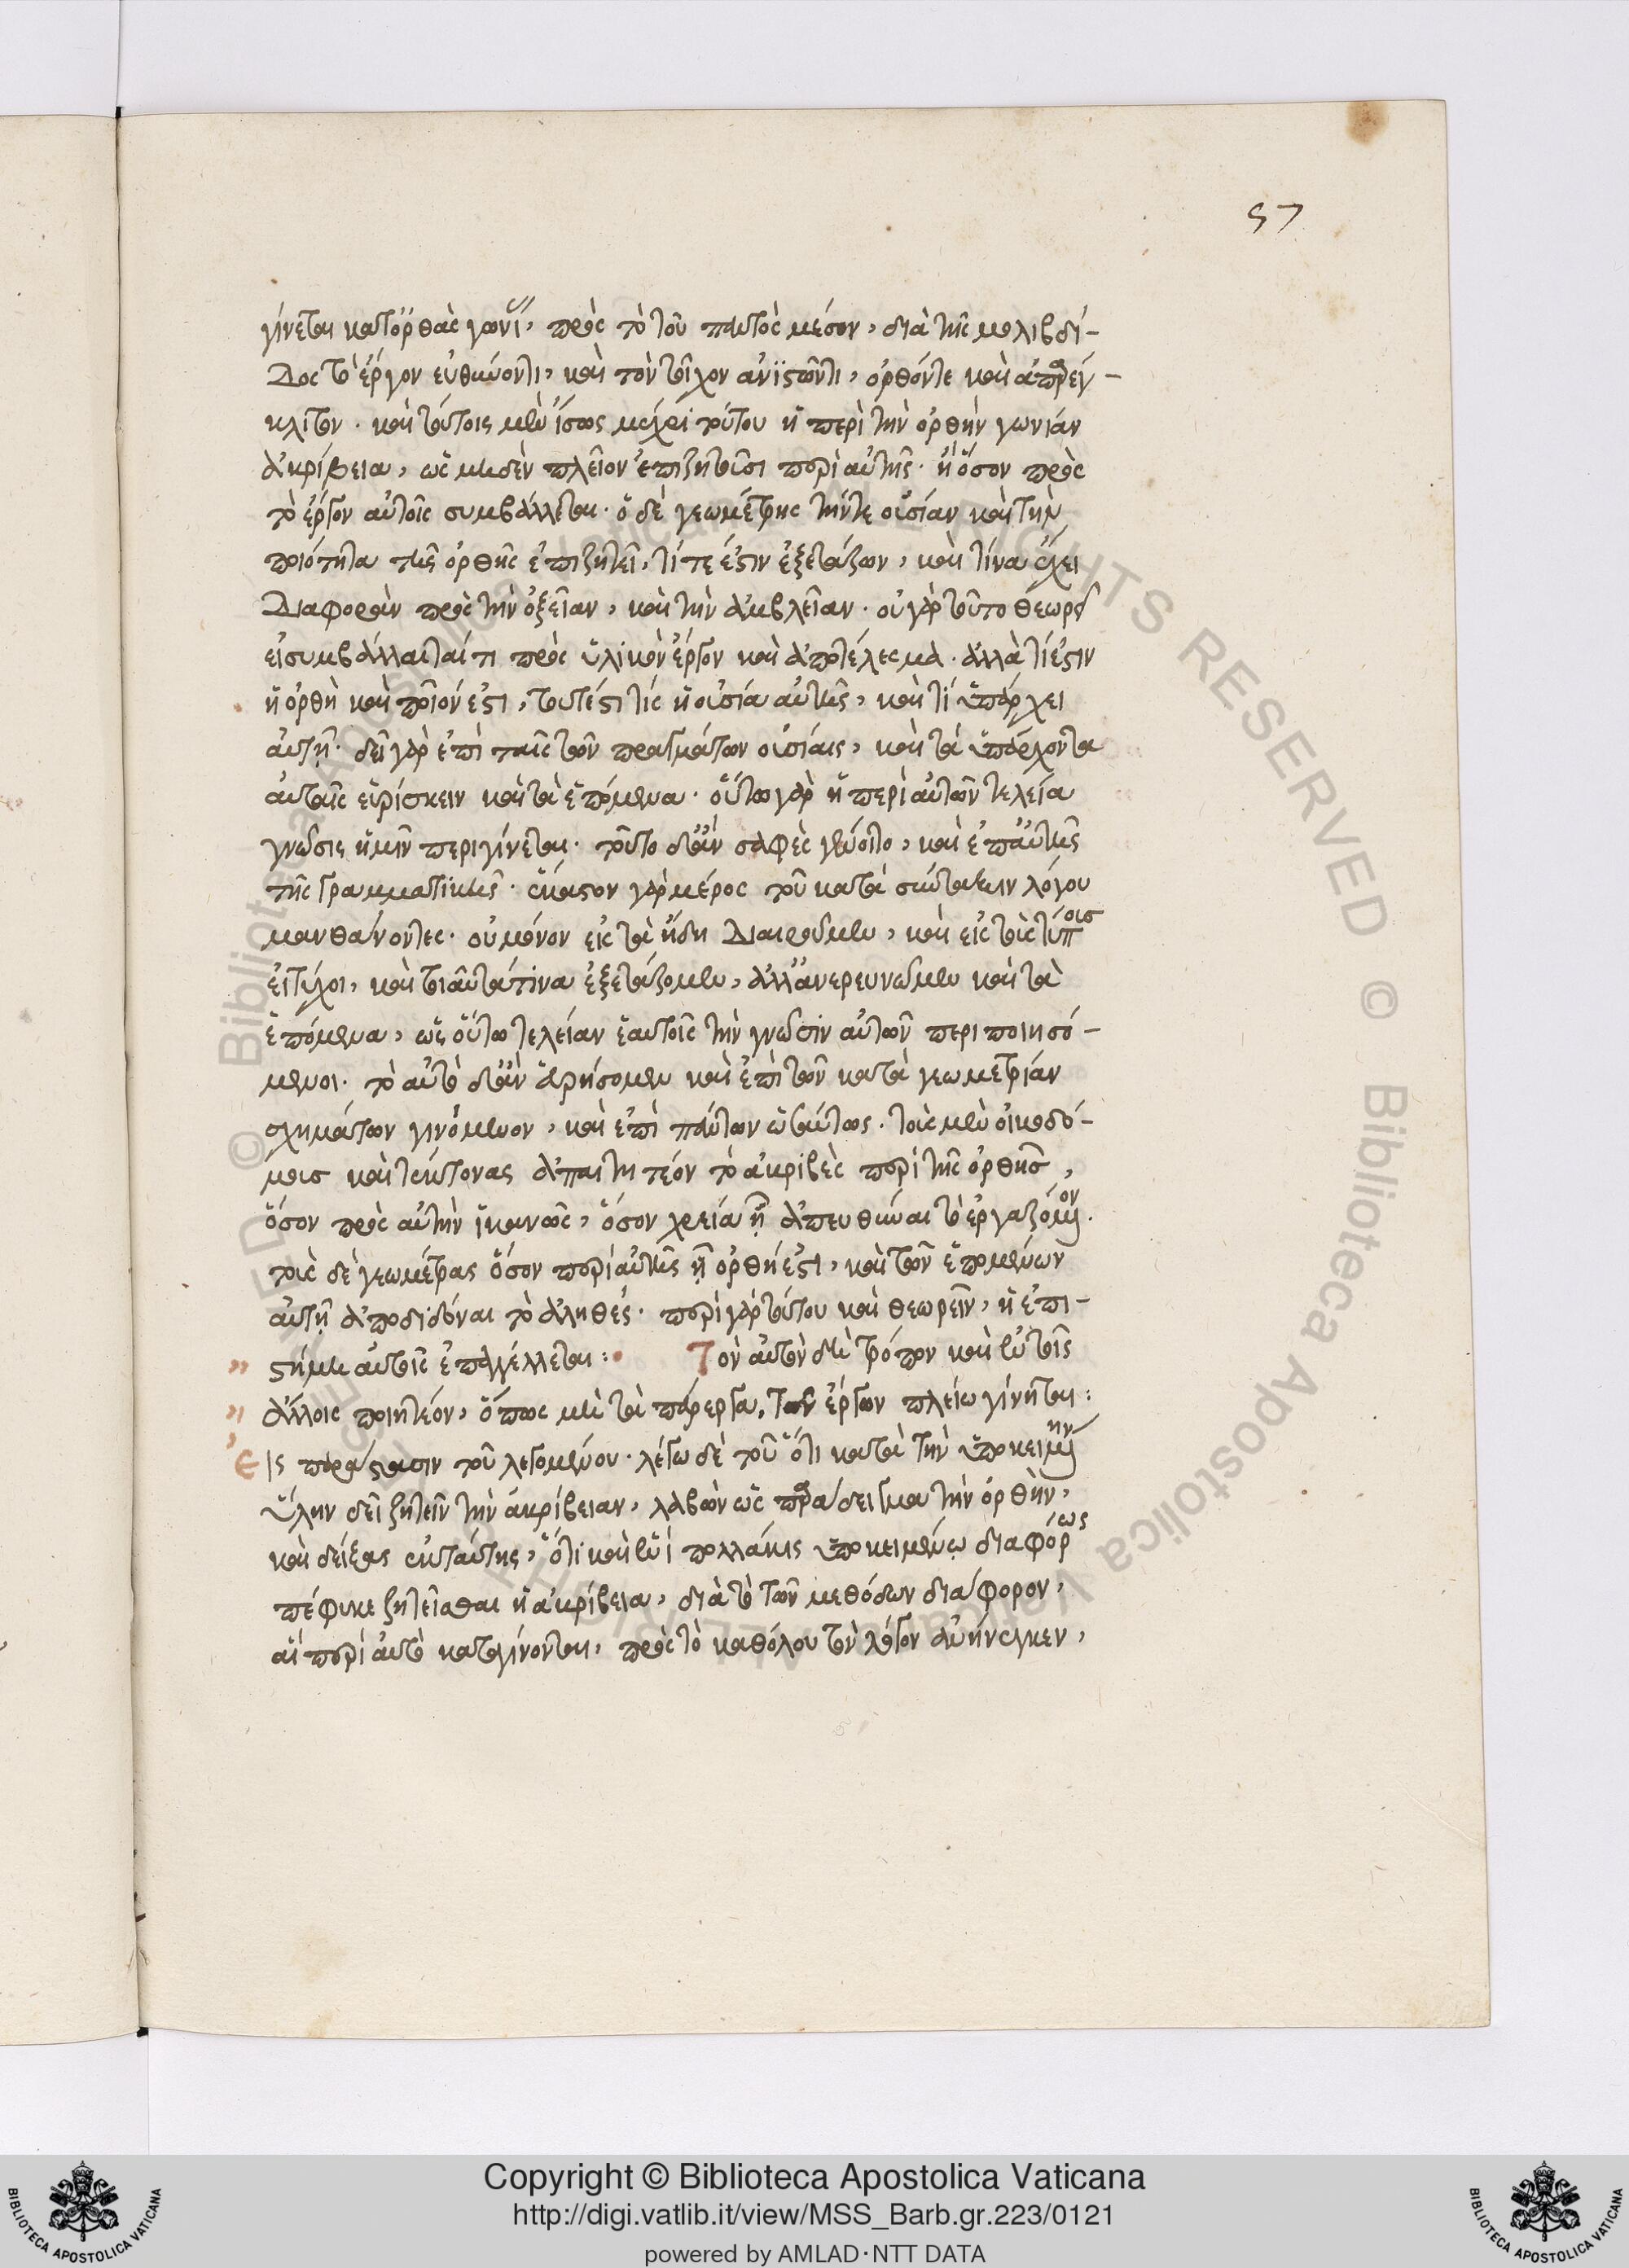 57
γίνεται κατ' ὀρθὰς γωνί, πρὸς τὸ τοῦ παντὸς μέσον, διὰ τῆς μολιβδί-
δος τὸ ἔργον εὐθύνοντι, καὶ τὸν τοῖχον ἀνϊστῶντι, ὀρθόν τε καὶ ἀπαρέγ-
κλιτον. καὶ τούτοις μὲν ἴσως μέχρι τούτου ἡ περὶ τὴν ὀρθὴν γωνίαν
ἀκρίβεια, ὡς μηδὲν πλεῖον ἐπιζητοῦσι περὶ αὐτῆς. ἢ ὅσον πρὸς
τὸ ἔργον αὐτοῖς συμβάλλεται. ὁ δὲ γεωμέτρης τήν τε οὐσίαν καὶ τὴν
ποιότητα τῆς ὀρθῆς ἐπιζητεῖ, τί τέ ἐστιν ἐξετάζων, καὶ τίνα ἔχει
διαφορὰν πρὸς τὴν ὀξεῖαν, καὶ τὴν ἀμβλεῖαν. οὐ γὰρ τοῦτο θεωρεῖ
εἰ συμβάλλεταί τι πρὸς ὑλικὸν ἔργον καὶ ἀποτέλεσμα. ἀλλὰ τί ἐστιν
ἡ ὀρθὴ καὶ ποῖόν ἐστι, τουτέστι τίς ἡ οὐσία αὐτῆς, καὶ τί ὑπάρχει
αὐτῇ. δεῖ γὰρ ἐπὶ ταῖς τῶν πραγμάτων οὐσίαις, καὶ τὰ ὑπάρχοντα
αὐταῖς εὑρίσκειν καὶ τὰ ἑπόμενα. οὕτω γὰρ ἡ περὶ αὐτῶν τελεία
γνῶσις ἡμῖν περιγίνεται. τοῦτο δ' ἂν σαφὲς γένοιτο, καὶ ἐπ' αὐτῆς
τῆς γραμματικῆς. ἕκαστον γὰρ μέρος τοῦ κατὰ σύνταξιν λόγου
μανθάνοντες. οὐ μόνον εἰς τὰ εἴδη διαιροῦμεν, καὶ εἰς τοὺς τύποις
εἰ τύχοι, καὶ τοιαῦτα τινα ἐξετάζομεν, ἀλλ' ἀνερευνῶμεν καὶ τὰ
ἑπόμενα, ὡς οὕτω τελείαν ἑαυτοῖς τὴν γνῶσιν αὐτῶν περιποιησό-
μενοι. τὸ αὐτὸ δ' ἂν εὑρήσομεν καὶ ἐπὶ τῶν κατὰ γεωμετρίαν
σχημάτων γινόμενον, καὶ ἐπὶ πάντων ὡσαύτως. τοὺς μὲν οἰκοδό-
μους καὶ τέκτονας ἀπαιτητέον τὸ ἀκριβὲς περὶ τῆς ὀρθῆς,
ὅσον πρὸς αὐτὴν ἱκανῶς, ὅσον χρεία ᾖ ἀπευθύναι τὸ ἐργαζόμενον.
τοὺς δὲ γεωμέτρας ὅσον περὶ αὐτῆς ᾗ ὀρθή ἐστι, καὶ τῶν ἑπομένων
αὐτῇ ἀποδιδόναι τὸ ἀληθές. περὶ γὰρ τούτου καὶ θεωρεῖν, ἡ ἐπι-
στήμη αὐτοῖς ἐπαγγέλλεται: Τὸν αὐτὸν δὴ τρόπον καὶ ἐν τοῖς
ἄλλοις ποιητέον, ὅπως μὴ τὰ πάρεργα, τῶν ἔργων πλείω γίνηται:
Εἰς παράστασιν τοῦ λεγομένου. λέγω δὲ τοῦ ὅτι κατὰ τὴν ὑποκειμένην
ὕλην δεῖ ζητεῖν τὴν ἀκρίβειαν, λαβὼν ὡς παράδειγμα τὴν ὀρθὴν,
καὶ δείξας ἐκ ταύτης, ὅτι καὶ ἐν ἑνὶ πολλάκις ὑποκειμένῳ διαφόρως
πέφυκε ζητεῖσθαι ἡ ἀκρίβεια, διὰ τὸ τῶν μεθόδων διάφορον,
αἳ περὶ αὐτὸ καταγίνονται, πρὸς τὸ καθόλου τὸν λόγον ἀνήνεγκεν,
Copyright © Biblioteca Apostolica Vaticana
http://digi.vatlib.it/view/MSS_Barb.gr.223/0121
powered by AMLAD·NTT DATA